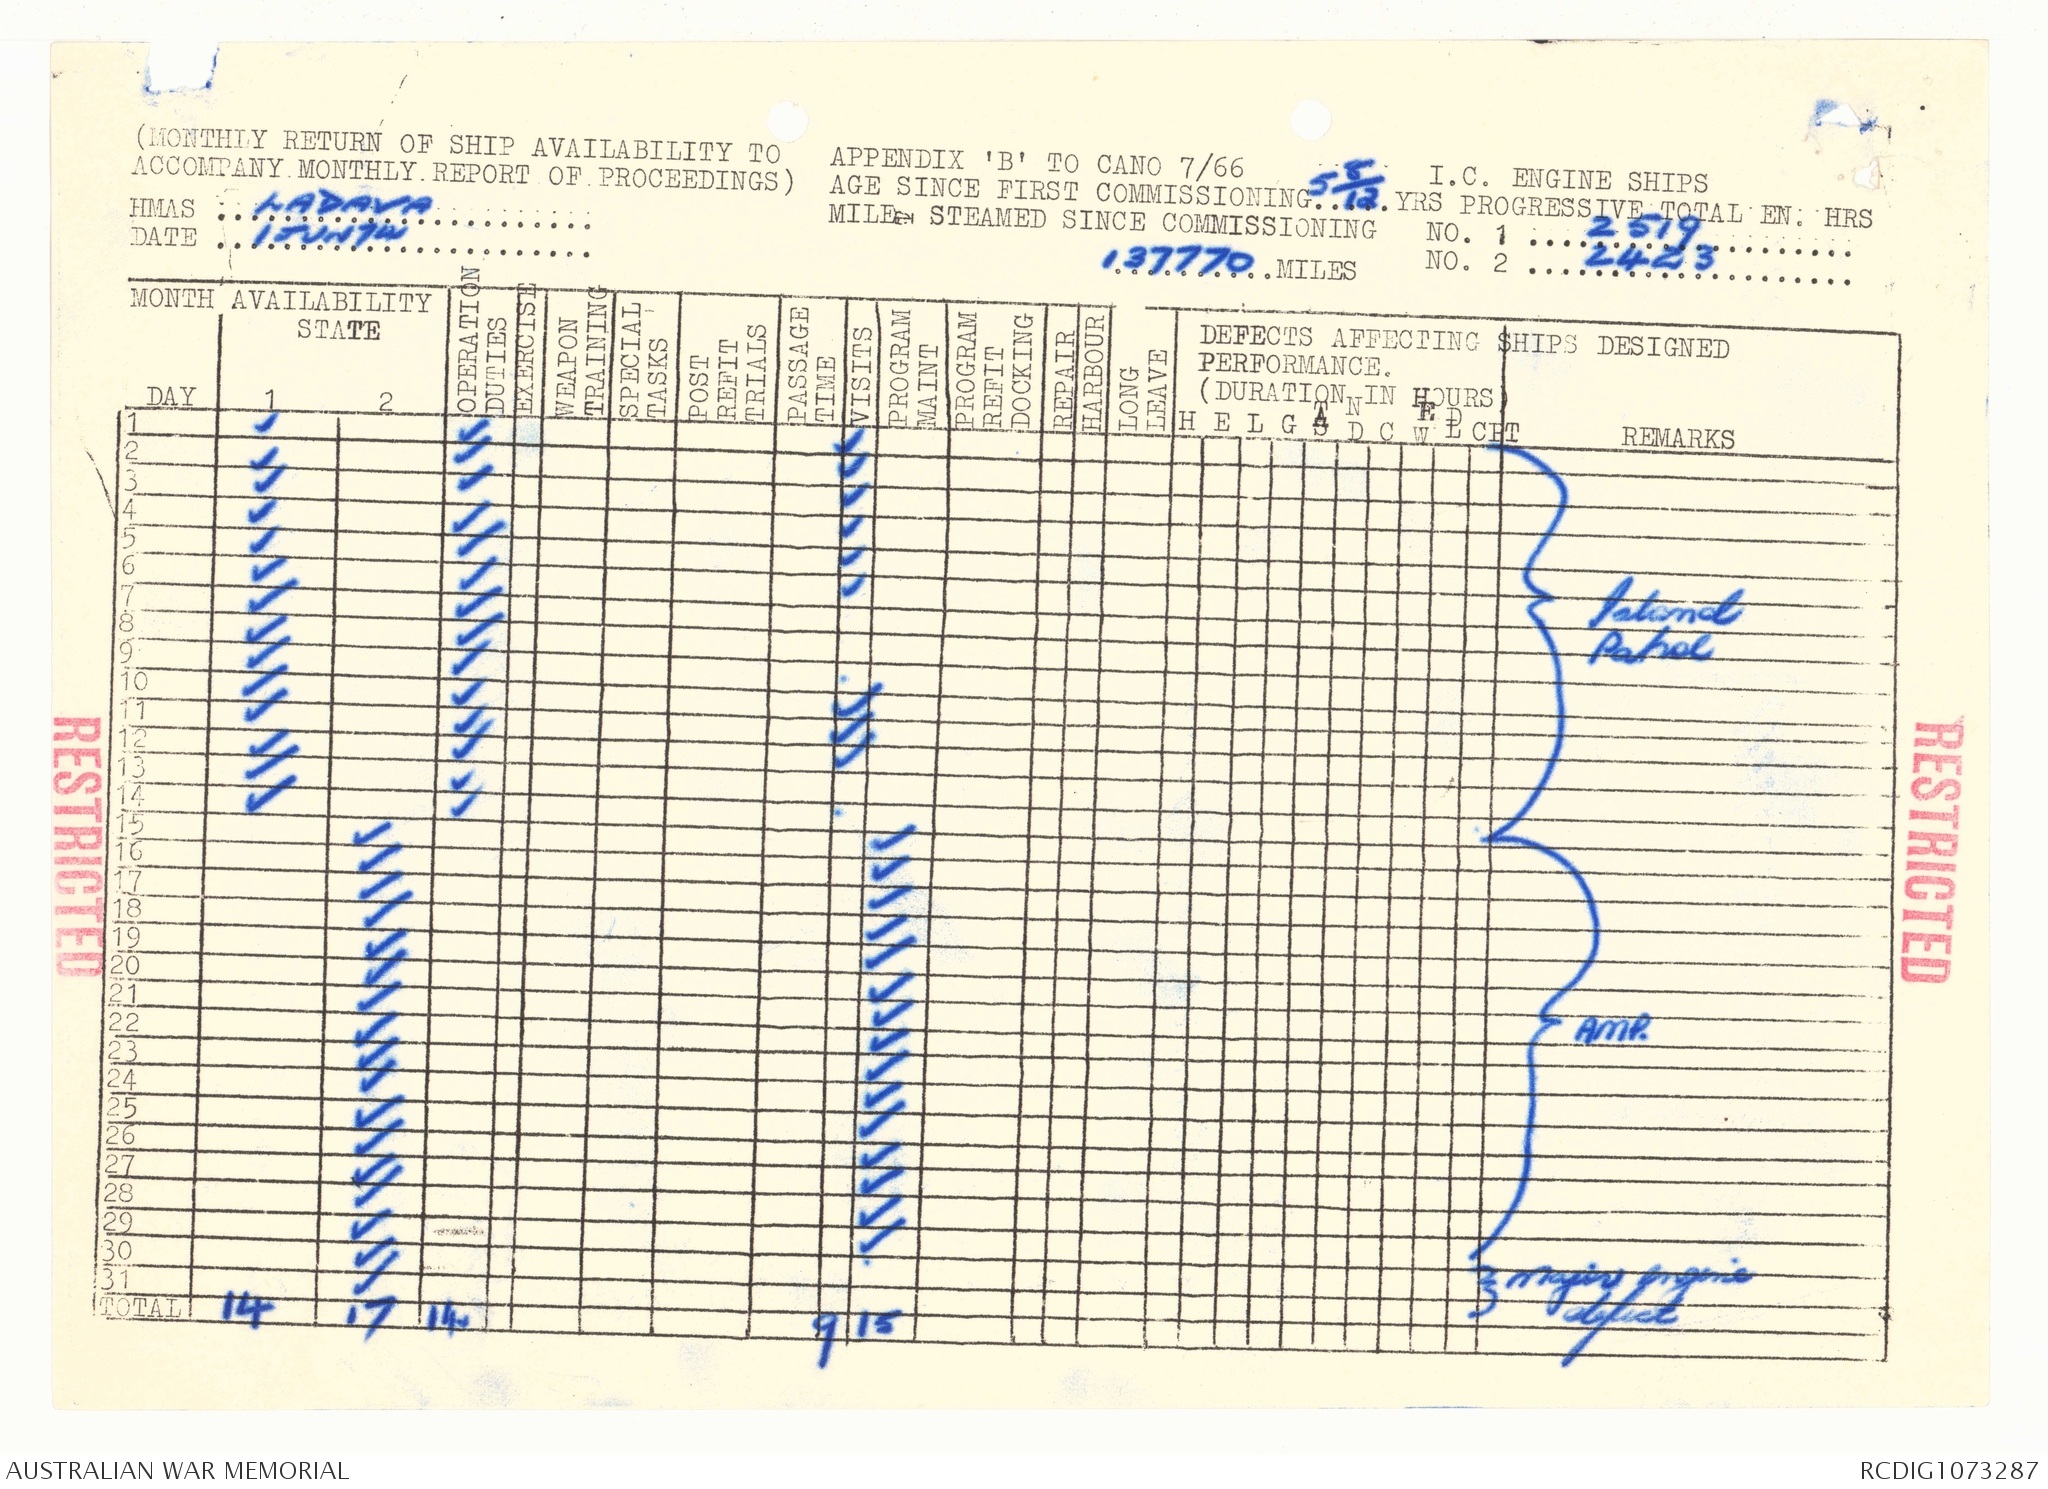 (MONTHLY RETURN OF SHIP AVAILABILITY TO
ACCOMPANY MONTHLY REPORT OF PROCEEDINGS)
HMAS LADAVA
DATE 1 JUN 74
APPENDIX 'B' TO CANO 7/66
AGE SINCE FIRST COMMISSIONING 5 8/12 YRS
MILES STEAMED SINCE COMMISSIONING
137770 MILES
I.C. ENGINE SHIPS
PROGRESSIVE TOTAL EN. HRS
NO. 1 2519
NO. 2 2423
MONTH
DAY
AVAILABILITY
STATE
1 2
OPERATION
DUTIES
EXERCISE
WEAPON
TRAINING
SPECIAL
TASKS
POST
REFIT
TRIALS
PASSAGE
TIME
VISITS
PROGRAM
MAINT
PROGRAM
REFIT
DOCKING
REPAIR
HARBOUR
LONG
LEAVE
DEFECTS AFFECTING SHIPS DESIGNED
PERFORMANCE.
(DURATION IN HOURS)
A N E D
H E L G S D C W L CPT
REMARKS
1 ✓ ✓
2 ✓ ✓ ✓
3 ✓ ✓ ✓
4 ✓ ✓ ✓
5 ✓ ✓ ✓
6 ✓ ✓ ✓
7 ✓ ✓ ✓
8 ✓ ✓
9 ✓ ✓
10 ✓ ✓
11 ✓ ✓ ✓
12 ✓ ✓ ✓
13 ✓ ✓ ✓
14 ✓ ✓
Island
Patrol
15 ✓ ✓
16 ✓ ✓
17 ✓ ✓
18 ✓ ✓
19 ✓ ✓
20 ✓ ✓
21 ✓ ✓
22 ✓ ✓
23 ✓ ✓
24 ✓ ✓
25 ✓ ✓
26 ✓ ✓
27 ✓ ✓
28 ✓ ✓
29 ✓ ✓
AMP.
30 ✓
31 ✓
Major Engine
defect
TOTAL 14 17 14 9 15
RESTRICTED
RESTRICTED
AUSTRALIAN WAR MEMORIAL
RCDIG1073287